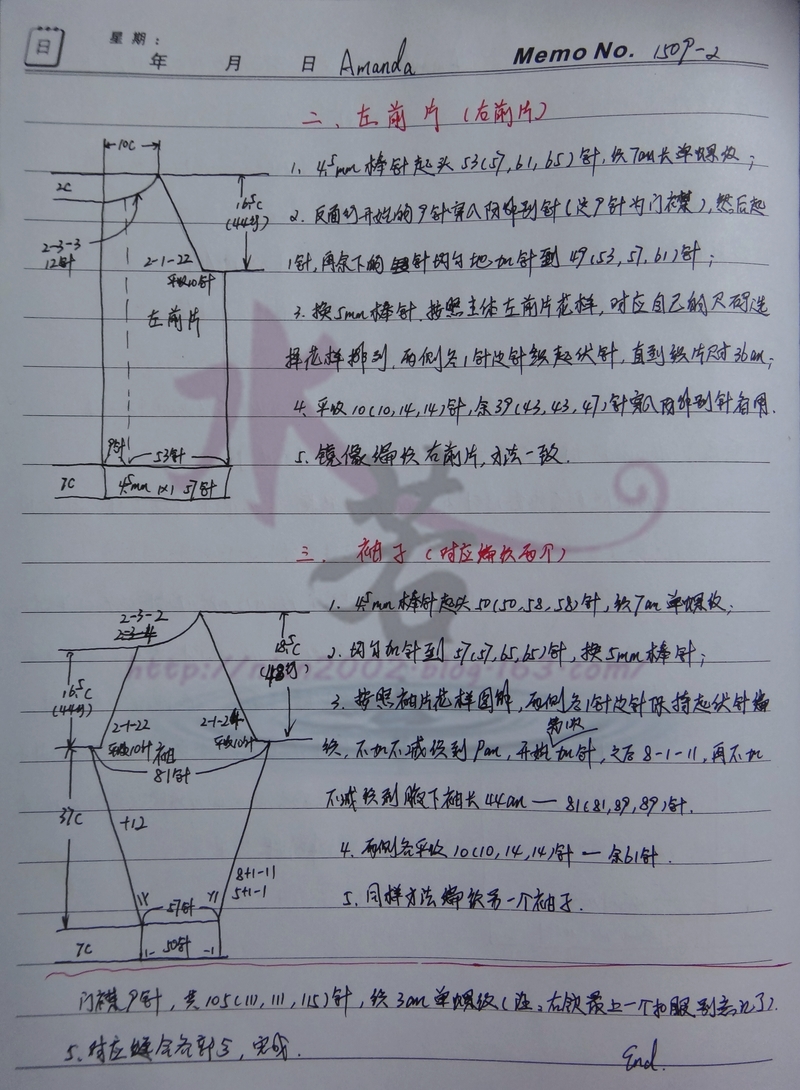 日
星期:
年 月 日 Amanda Memo No. 1509-2
二、左前片(右前片)
1. 4.5mm棒针起头53(57,61,65)针,织7cm长单螺纹;
2. 反面行开始的9针穿入防卸别针(这9针为门襟),然后起
1针,再余下的针均匀地加针到49(53,57,61)针;
3. 换5mm棒针.按照主体左前片花样,对应自己的尺码选
择花样排列.两侧各1针边针织起伏针,直到织片尺寸36cm;
4. 平收10(10,14,14)针,余39(43,43,47)针穿入防卸别针备用.
5. 镜像编织右前片,方法一致.
10C
2C
16.5C
(44行)
2-3-3
12针
2-1-22
平收10针
左前片
9针
53针
7C
4.5mm 1×1 57针
三. 袖子(对应编织两个)
1. 4.5mm棒针起头50(50,58,58)针,织7cm单螺纹;
2. 均匀加针到57(57,65,65)针,换5mm棒针;
3. 按照袖片花样图解,两侧各1针边针保持起伏针编
织,不加不减织到9cm,开始第1次加针,之后8-1-11,再不加
不减织到腋下袖长44cm — 81(81,89,89)针.
4. 两侧各平收10(10,14,14)针 — 余61针.
5. 同样方法编织另一个袖子.
2-3-2
2-3-4
18.5C
(48行)
16.5C
(44行)
2-1-22
平收10针
2-1-24
平收10针
袖
81针
37C
+12
8+1-11
5+1-1
57针
7C
1-
50针
-1
门襟9针,共105(111,111,115)针,织3cm单螺纹(注:右领最上一个扣眼别忘记了).
5. 对应缝合各部分,完成.
End.
水若
http://
2002.blog.163.com/